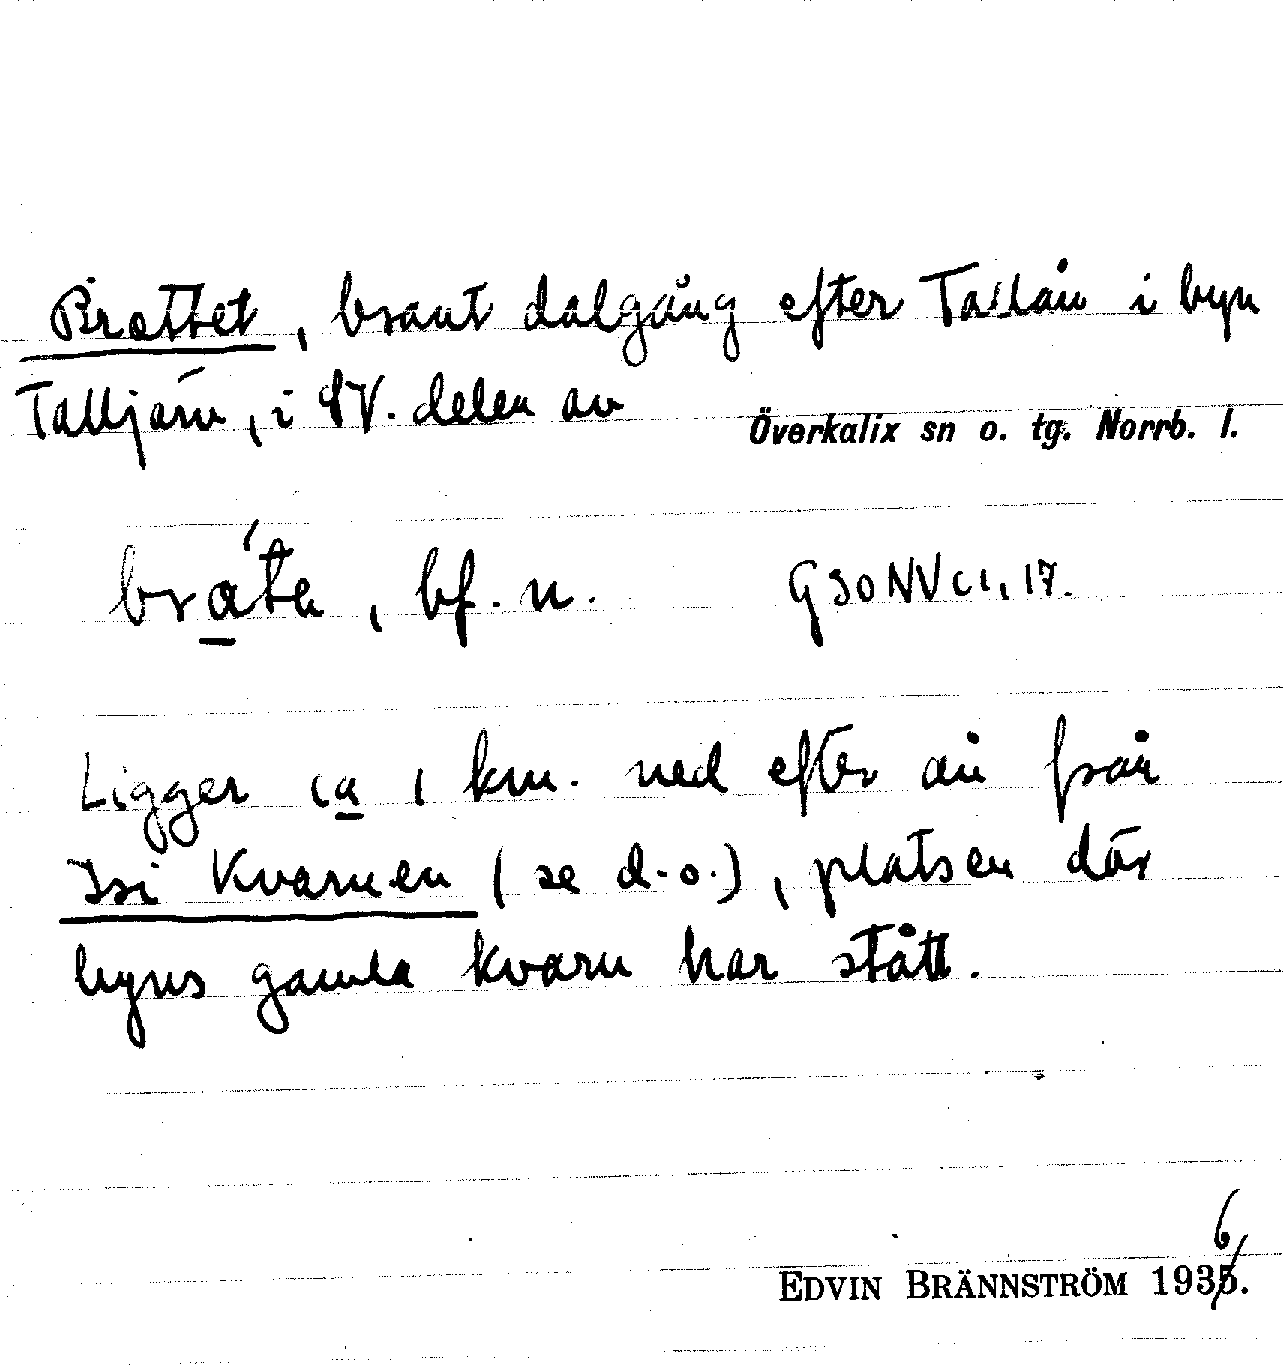 Brattet, brant dalgång efter Tallån i byn
Talljärv, i SV. delen av Överkalix sn o. tg. Norrb. l.
bráta, bf. n. G30NVc1, 17.
Ligger ca 1 km. ned efter ån från
Isi Kvarnen (se d.o.), platsen där
byns gamla kvarn har stått.
6
EDVIN BRÄNNSTRÖM 1935.